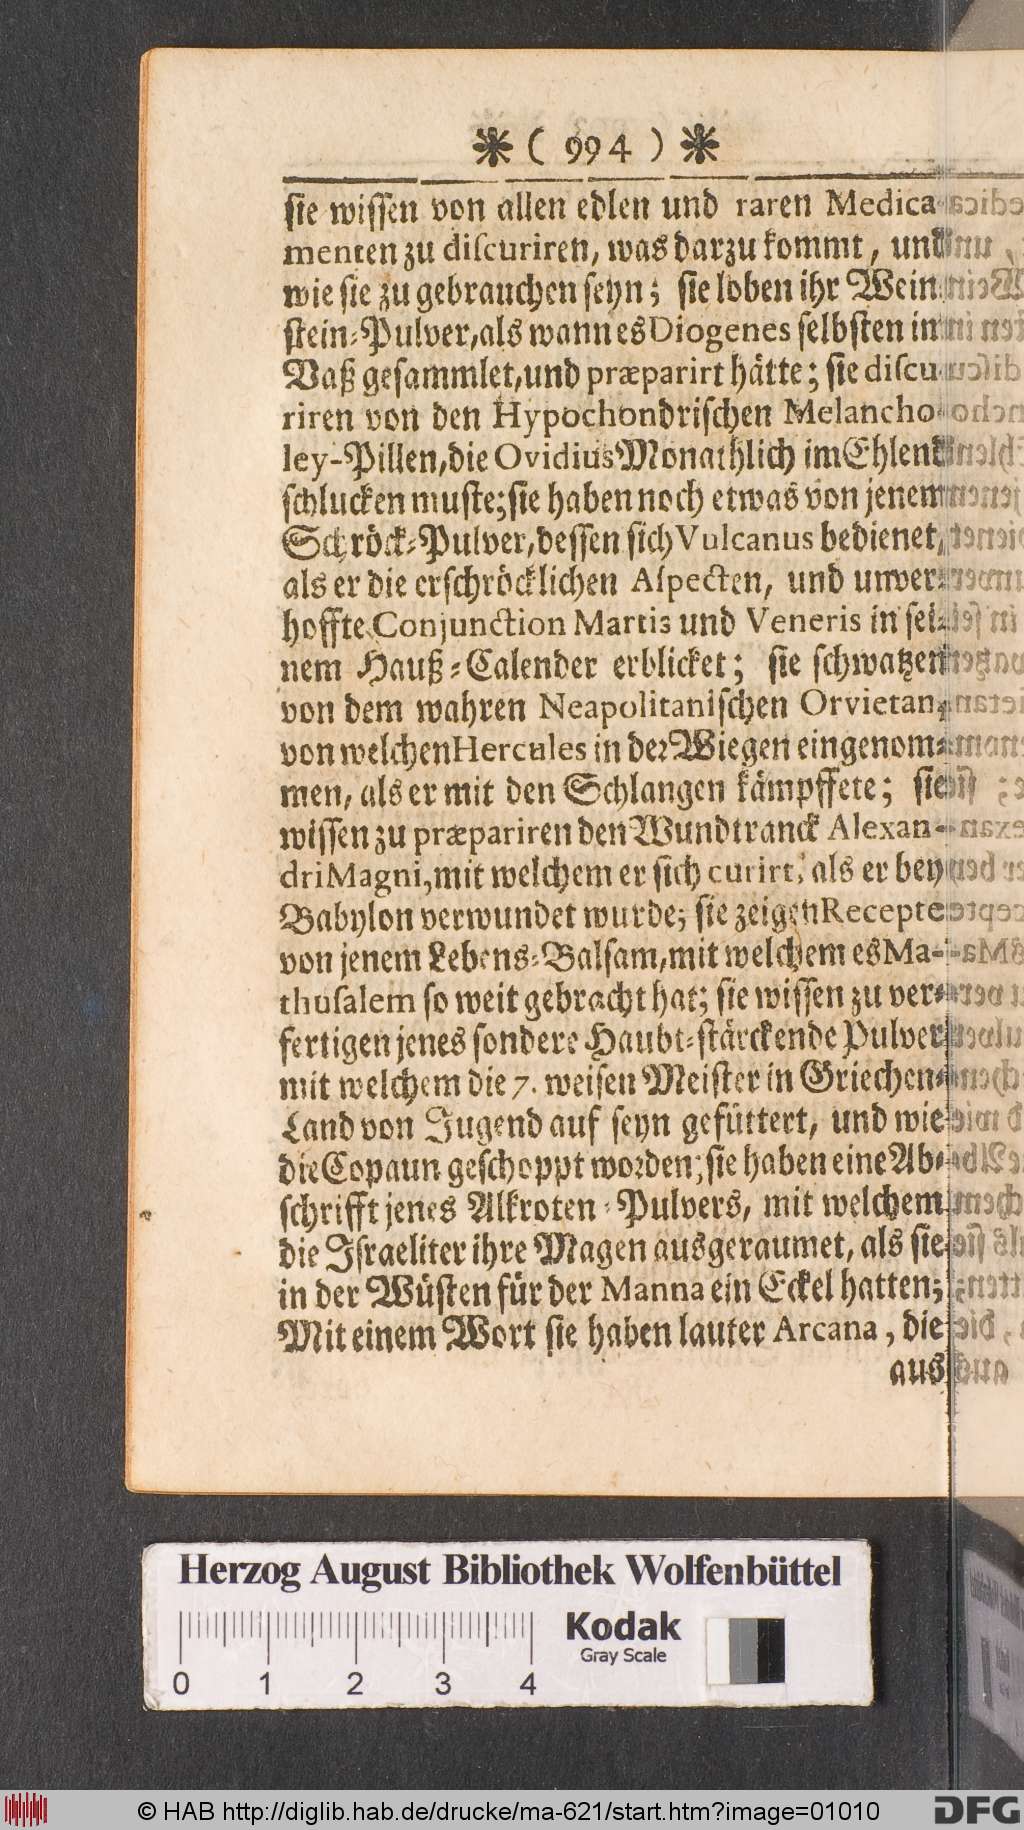 ❋ ( 994 ) ❋
sie wissen von allen edlen und raren Medica-
menten zu discuriren, was darzu kommt, und
wie sie zu gebrauchen seyn; sie loben ihr Wein
stein-Pulver, als wann es Diogenes selbsten im
Vaß gesammlet, und præparirt hätte; sie discu-
riren von den Hypochondrischen Melancho-
ley-Pillen, die Ovidius Monathlich im Ehlend
schlucken muste; sie haben noch etwas von jenem
Schröck-Pulver, dessen sich Vulcanus bedienet,
als er die erschröcklichen Aspecten, und unver-
hoffte Conjunction Martis und Veneris in sei-
nem Hauß-Calender erblicket; sie schwatzen
von dem wahren Neapolitanischen Orvietan,
von welchen Hercules in der Wiegen eingenom-
men, als er mit den Schlangen kämpffete; sie
wissen zu præpariren den Wundtranck Alexan-
dri Magni, mit welchem er sich curirt, als er bey
Babylon verwundet wurde; sie zeigen Recepte
von jenem Lebens-Balsam, mit welchem es Ma-
thusalem so weit gebracht hat; sie wissen zu ver-
fertigen jenes sondere Haubt-stärckende Pulver
mit welchem die 7. weisen Meister in Griechen-
Land von Jugend auf seyn gefüttert, und wie
die Copaun geschoppt worden; sie haben eine Ab-
schrifft jenes Alkroten-Pulvers, mit welchem
die Israeliter ihre Magen ausgeraumet, als sie
in der Wüsten für der Manna ein Eckel hatten;
Mit einem Wort sie haben lauter Arcana, die
aus
Herzog August Bibliothek Wolfenbüttel
Kodak
Gray Scale
0 1 2 3 4
© HAB http://diglib.hab.de/drucke/ma-621/start.htm?image=01010
DFG